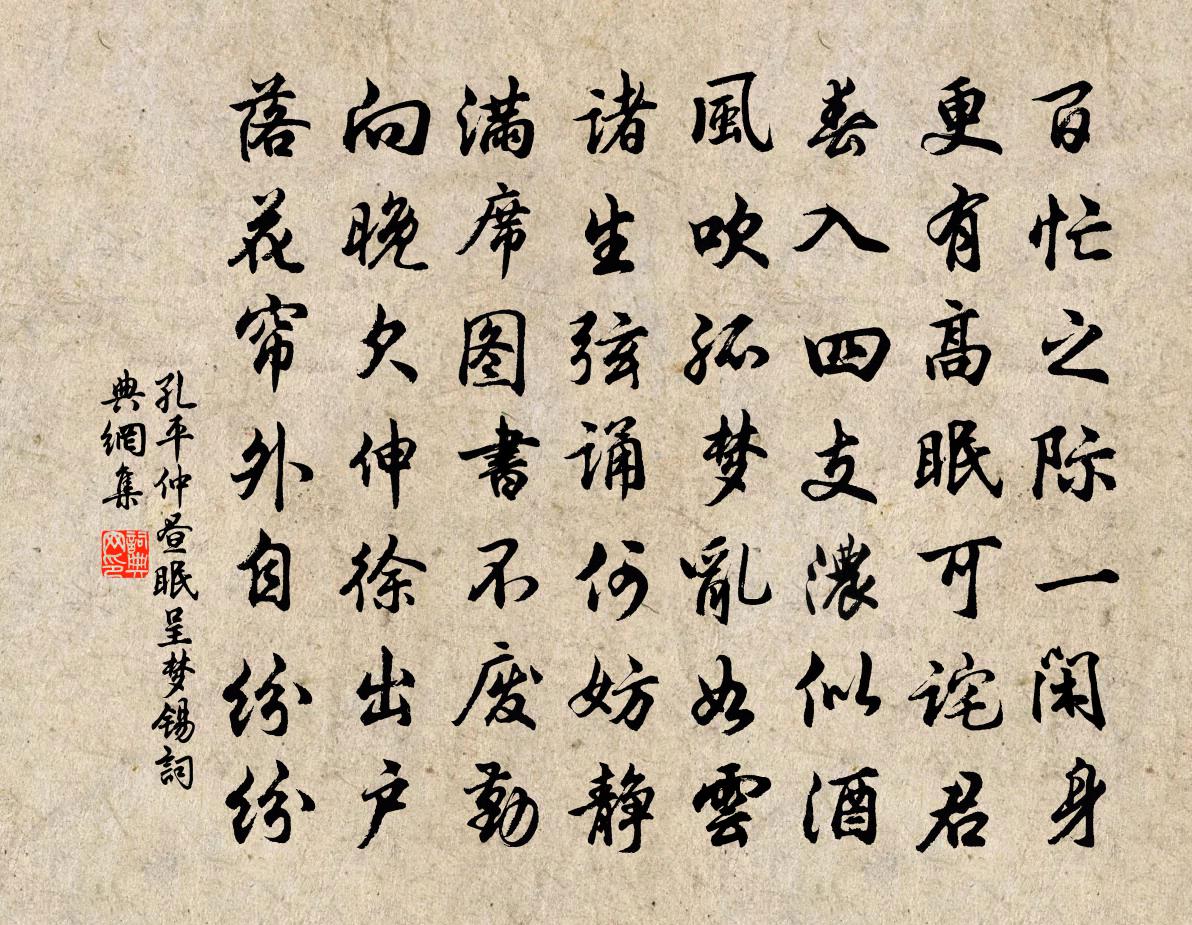 百忙之际一闲身
更有高眠可诧君
春入四支濃似酒
風吹孤梦亂如雲
诸生弦诵何妨静
满席图書不废勤
向晚欠伸徐出户
落花帘外自纷纷
孔平仲昼眠呈梦锡詞
典網集
詞典网印